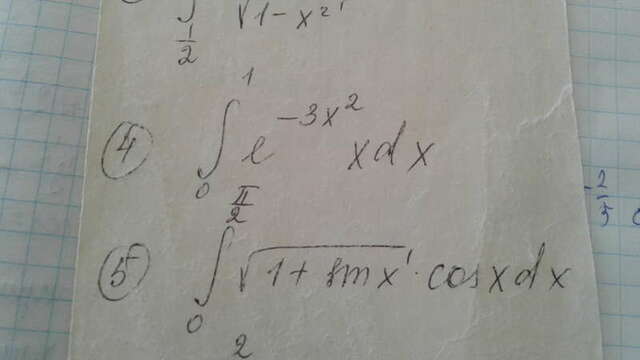 ∫ 1/2 √1-x²
④ ∫₀¹ e^{-3x²} x dx
⑤ ∫₀^{π/2} √1+sinx · cosx dx
2